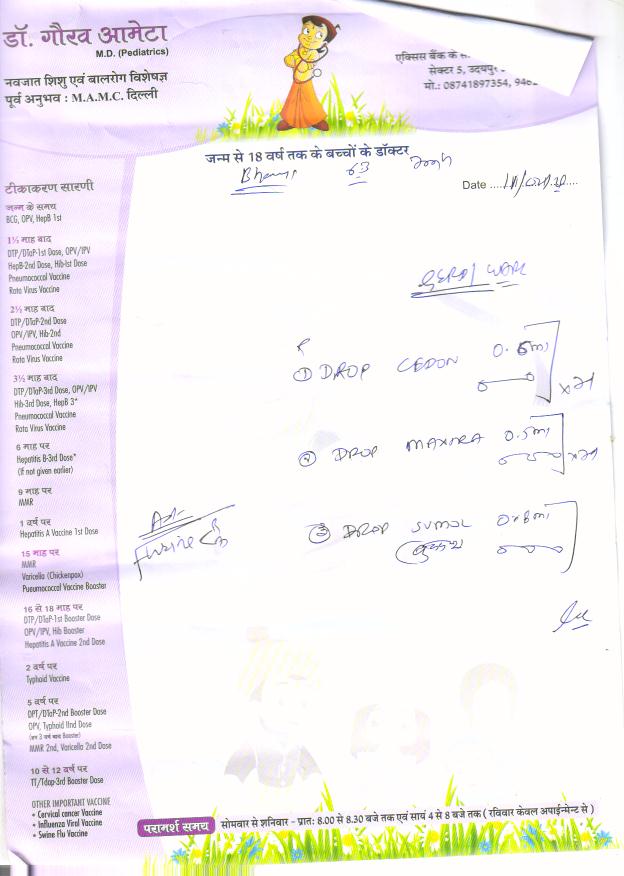 डॉ. गौरव आमेटा
M.D. (Pediatrics)
नवजात शिशु एवं बालरोग विशेषज्ञ
पूर्व अनुभव : M.A.M.C. दिल्ली
एक्सिस बैंक के
सेक्टर 5, उदयपुर
मो.: 08741897354,
जन्म से 18 वर्ष तक के बच्चों के डॉक्टर
Date
टीकाकरण सारणी
जन्म के समय
BCG, OPV, HepB 1st
1½ माह बाद
DTP/DTaP-1st Dose, OPV/IPV
HepB-2nd Dose, Hib-Ist Dose
Pneumococcal Vaccine
Rota Virus Vaccine
2½ माह बाद
DTP/DTaP-2nd Dose
OPV/IPV, Hib-2nd
Pneumococcal Vaccine
Rota Virus Vaccine
3½ माह बाद
DTP/DTaP-3rd Dose, OPV/IPV
Hib-3rd Dose, HepB 3*
Pneumococcal Vaccine
Rota Virus Vaccine
6 माह पर
Hepatitis B-3rd Dose*
(if not given earlier)
9 माह पर
MMR
1 वर्ष पर
Hepatitis A Vaccine 1st Dose
15 माह पर
MMR
Varicella (Chickenpox)
Pueumococcal Vaccine Booster
16 से 18 माह पर
DTP/DTaP-1st Booster Dose
OPV/IPV, Hib Booster
Hepatitis A Vaccine 2nd Dose
2 वर्ष पर
Typhoid Vaccine
5 वर्ष पर
DPT/DTaP-2nd Booster Dose
OPV, Typhoid IInd Dose
MMR 2nd, Varicella 2nd Dose
10 से 12 वर्ष पर
TT/Tdap-3rd Booster Dose
OTHER IMPORTANT VACCINE
• Cervical cancer Vaccine
• Influenza Viral Vaccine
• Swine Flu Vaccine
① DROP CEDON
② DROP MAXTRA 0.5ml
③ DROP SUMOL
परामर्श समय सोमवार से शनिवार - प्रात: 8.00 से 8.30 बजे तक एवं सायं 4 से 8 बजे तक ( रविवार केवल अपाईन्मेन्ट से )